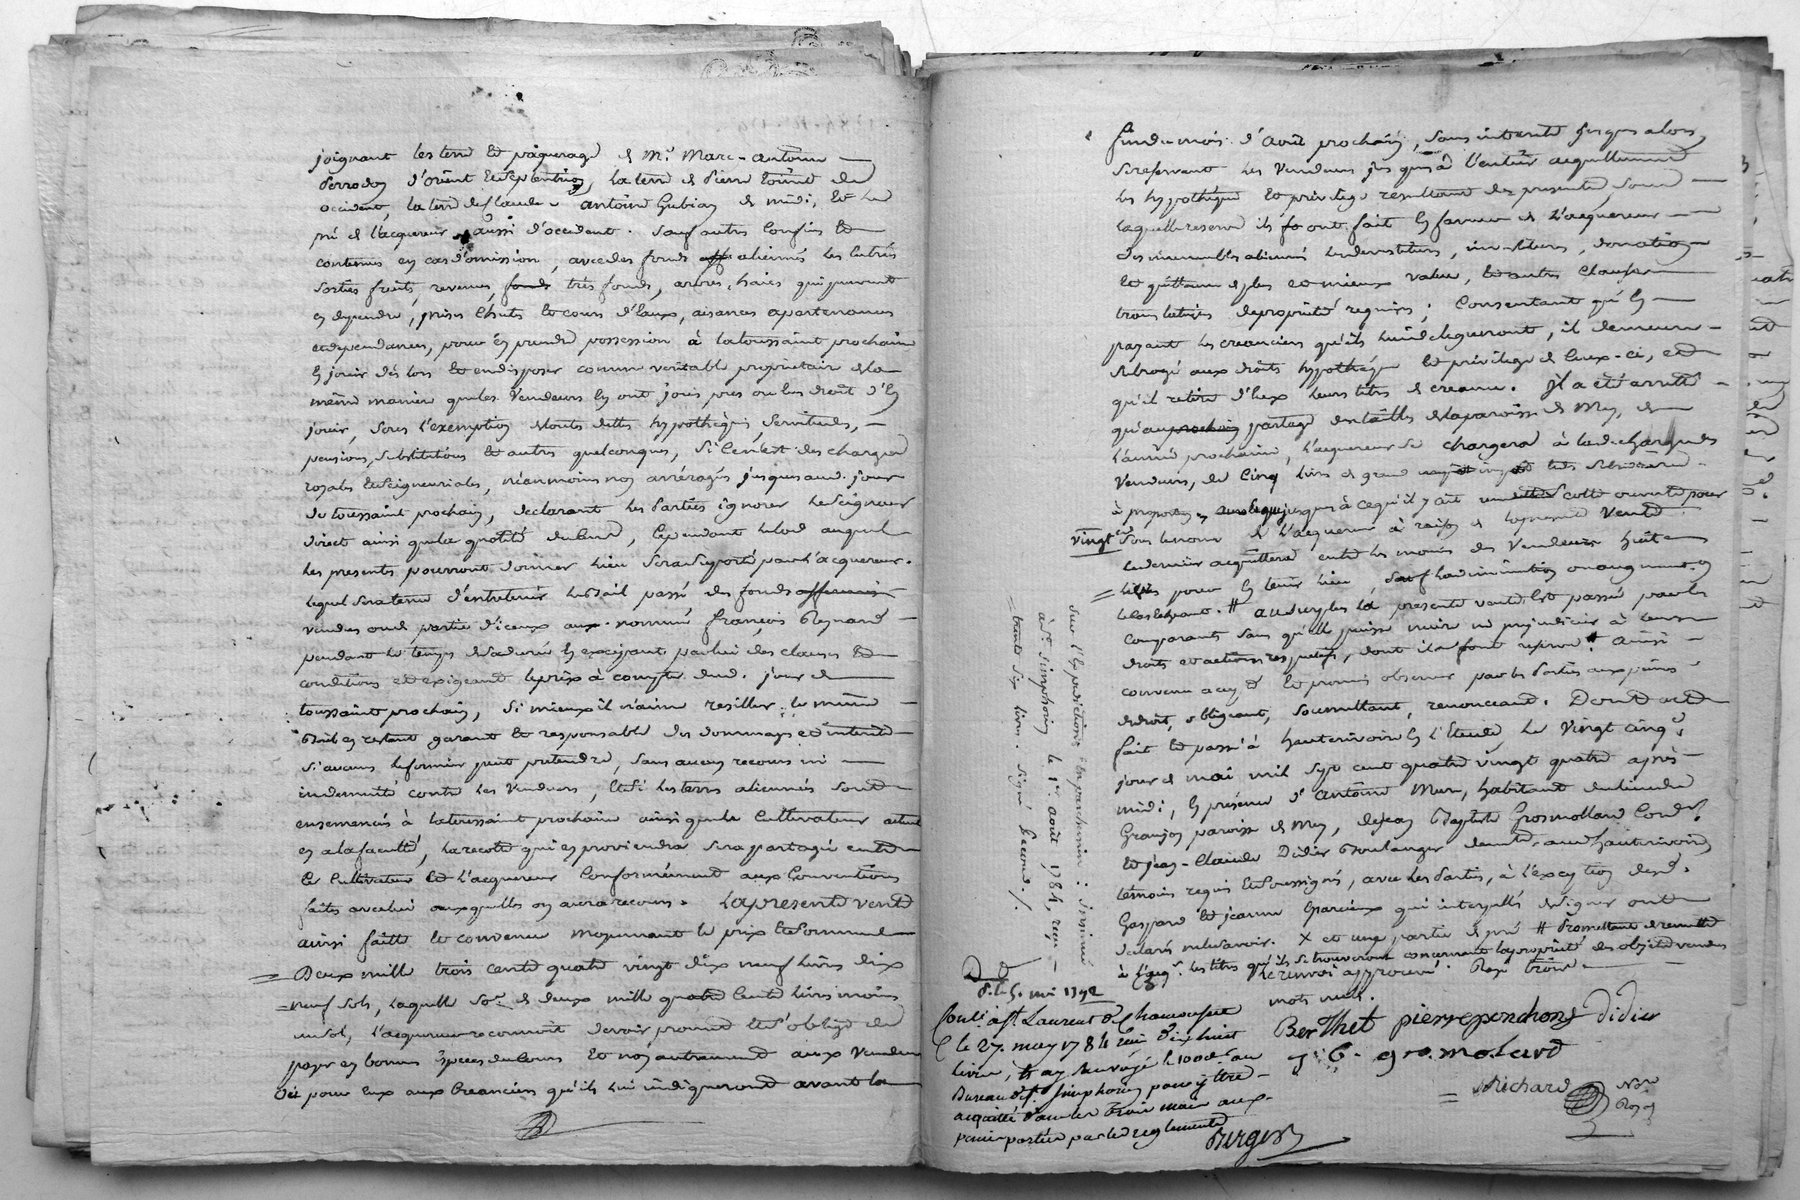 joignant les terre et pâquerage de Mr. Marc-antoine
Perrodon d'orient et septentrion, la terre de Pierre
occident, la terre de Claude antoine Gubian de midi, et le
pré de l'acquereur aussi d'occident. Sauf autres confins et
contenus en cas d'omission, avec des fonds aliennés les entrés
sorties fruits, revenus, fonds très fonds, arbres, haies qui peuvent
en dependre, prises chuts et cours d'eaux, aisances apartenances
et dependances, pour en prendre possession à la toussaint prochaine
en jouir dès lors et en disposer comme veritable propriétaire de la
même manière que les Vendeurs en ont joui pres ou eu droit d'en
jouir, sous l'exemption de touts dettes hypothèques, servitudes,
pensions, substitutions et autres quelconques, si ce n'est des charges
royales et seigneuriales, néanmoins non arrérages jusques aud. jour
de toussaint prochain, declarant les Parties ignorer le seigneur
direct ainsi que la quotité du cens, cependant le lod auquel
les presentes pourront donner lieu sera suporté par l'acquereur.
lequel sera tenu d'entretenir le Bail passé des fonds
vendus ou de partie d'iceux au nommé françois Reynard
pendant le temps de sa durée en executant par lui les clauses et
conditions et exigeant le prix à compter dud. jour de
toussaint prochain, si mieux il n'aime resilier le même
Bail en restant garant et responsable des dommages et intérêts
si aucuns le fermier peut pretendre, sans aucun recours ni
indemnité contre les Vendeurs, et si les terres aliennés sont
ensemencés à la toussaint prochaine ainsi que le Cultivateur actuel
en a la faculté, la recolte qui en proviendra sera partagée entre
le Cultivateur et l'acquereur Conformément aux Conventions
faites avec lui auxquelles on aura recours. La presente vente
ainsi faite et convenue moyennant le prix et somme de
Deux mille trois cents quatre vingt dix neuf livres dix
neuf sols, laquelle so.e de deux mille quatre cents livres moins
un sol, l'acquereur reconnoit devoir promet et s'oblige de
payer en bonnes Especes du Cours et non autrement aux Vendeurs
ou pour eux aux Creanciers qu'ils lui indiqueront avant la
fin du mois d'Août prochain, sans interêts jusques alors,
se reservant les Vendeurs jusques à l'entier acquittement
les hypothèque et privilege resultant des presentes, sous
laquelle reserve ils ont fait en faveur de l'acquereur
des immeubles aliennés les devestiture, investiture, donation
et quittance de plus et mieux value, et autres Clauses
translatives de propriété requises; Consentant qu'en
payant les creanciers qu'ils lui delegueront, il demeure
subrogé aux droits hypothéque et privilege de ceux-ci, et
qu'il retire d'eux leurs titres de creance. Il a été arrêté
qu'au prochain partage des tailles de la paroisse de Mey, de
l'année prochaine, l'acquereur se chargera à la decharge des
Vendeurs, de Cinq livres de grand
à proportion jusques à ce qu'il y ait Cotte ouverte pour
vingt
sous le nom de l'acquereur à raison de la presente Vente
le dernier acquittera entre les mains des Vendeurs huit
livres pour en tenir lieu, sauf la diminution ou augment.on
le cas echeant. # au surplus la presente vente est passée par les
Comparants sans qu'elle puisse nuire ni prejudicier à leurs
droits et actions respectifs, dont ils font reserve # ainsi
convenu accepté et promis observer par les Parties aux peines
de droit, obligeant, soumettant, renonceant. Dont acte
fait et passé à hauterivoire en l'Etude, le Vingt cinq.e
jour de mai mil sept cent quatre vingt quatre après
midi, en présence d'antoine Mure, habitant du lieu de
Granjon paroisse de Mey, de Jean Baptiste Grosmollard Cord.r
et jean-Claude Didier Boulanger dem.t aud. hauterivoire
témoins requis et soussignés, avec les Parties, à l'exception desd.
Gaspard et jeanne qui interpellés de signer ont
declaré ne le savoir. X et une partie de pré # Promettant de remettre
à l'acq.r les titres qu'ils se trouveront concernants la propriété des objets vendus
le renvoi approuvé. Rayé trois
mots nuls.
BerThet pierre ponchon Didier
J. B. gro.molard
Richard Nore Royal
sur l'Expedition en parchemin: insinué
à St. Simphorien le 1er. août 1784, reçu
trente six livres. Signé Second./.
Coulé à St. Laurent de Chamousset
le 27. may 1784 reçu dix huit
livres, et ay renvoyé le 100e d. au
Bureau de St. Simphorien pour y être
acquitté dans les trois mois aux
peines portées par les reglements
Berger